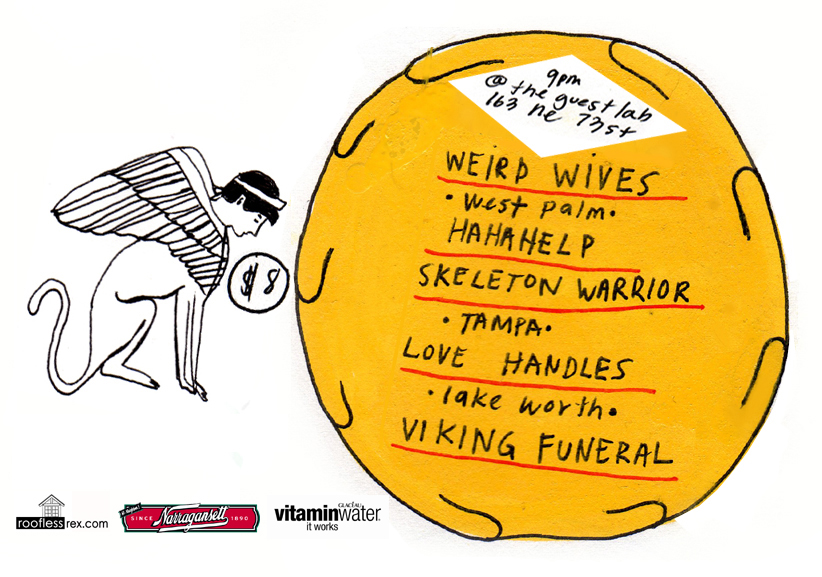 9pm
@ the guest lab
163 ne 73st
WEIRD WIVES
• west palm •
HAHAHELP
SKELETON WARRIOR
• TAMPA •
LOVE HANDLES
• lake worth •
VIKING FUNERAL
$8
rooflessrex.com
SINCE Narragansett 1890
GLACÉAU
vitaminwater
it works